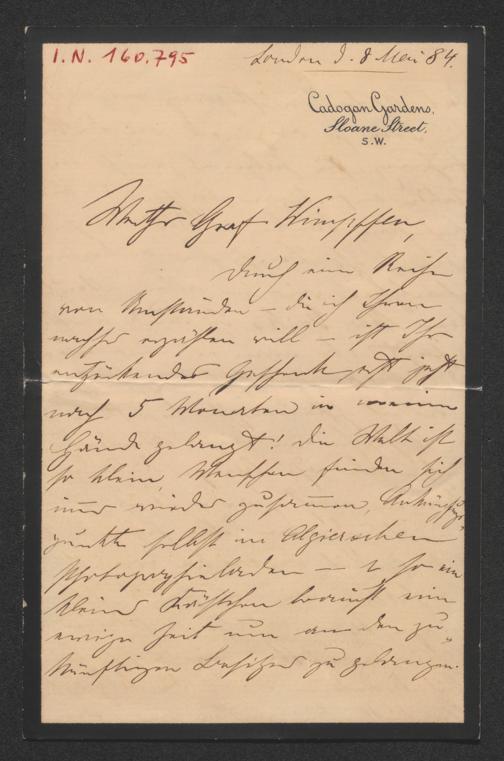 I.N. 160.795
London d. 8 Mai 84.
Cadogan Gardens,
Sloane Street,
S.W.
Werther Graf Wimpffen,
Durch eine Reihe
von Umständen – die ich Ihnen
nachher erzählen will – ist Ihr
entzückendes Geschenk erst jetzt
nach 5 Monaten in meine
Hände gelangt! Die Welt ist
so klein, Menschen finden sich
immer wieder zusammen, Anknüpfungs-
punkte selbst im Algierschen
Photographieladen – u so ein
kleines Kästchen braucht eine
ewige Zeit um an den zu-
künftigen Besitzer zu gelangen.